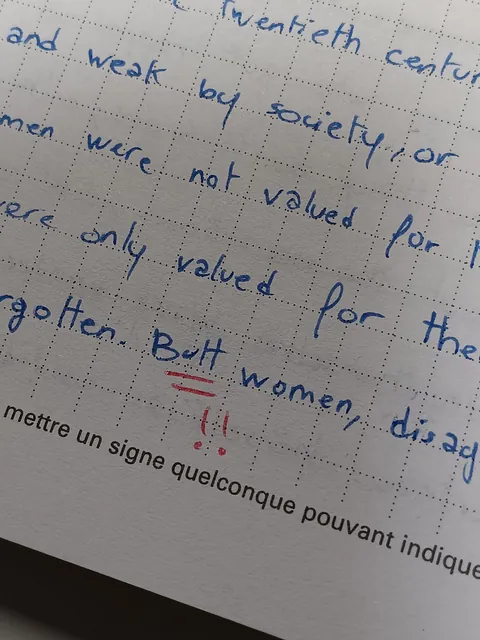 Twentieth centur
and weak by society, or
men were not valued for
ere only valued for the
rgotten. Butt women, disag
!!
mettre un signe quelconque pouvant indique